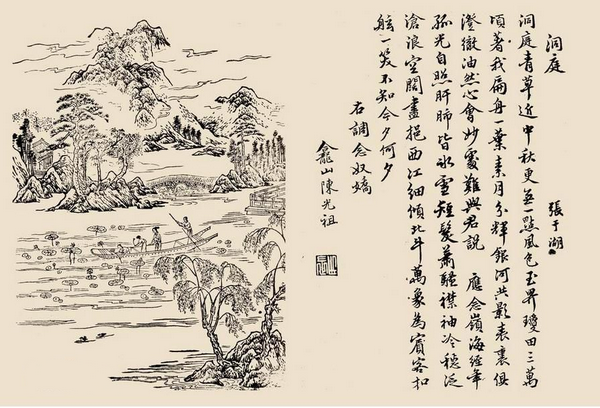 洞庭 張于湖
洞庭青草近中秋更無一點風色玉界瓊田三萬
頃著我扁舟一葉素月分輝銀河共影表裏俱
澄徹油然心會妙處難與君說 應念嶺海經年
孤光自照肝肺皆冰雪短髮蕭騷襟袖冷穩泛
滄浪空闊盡挹西江細傾北斗萬象為賓客扣
舷一笑不知今夕何夕
右調念奴嬌
龕山陳光祖